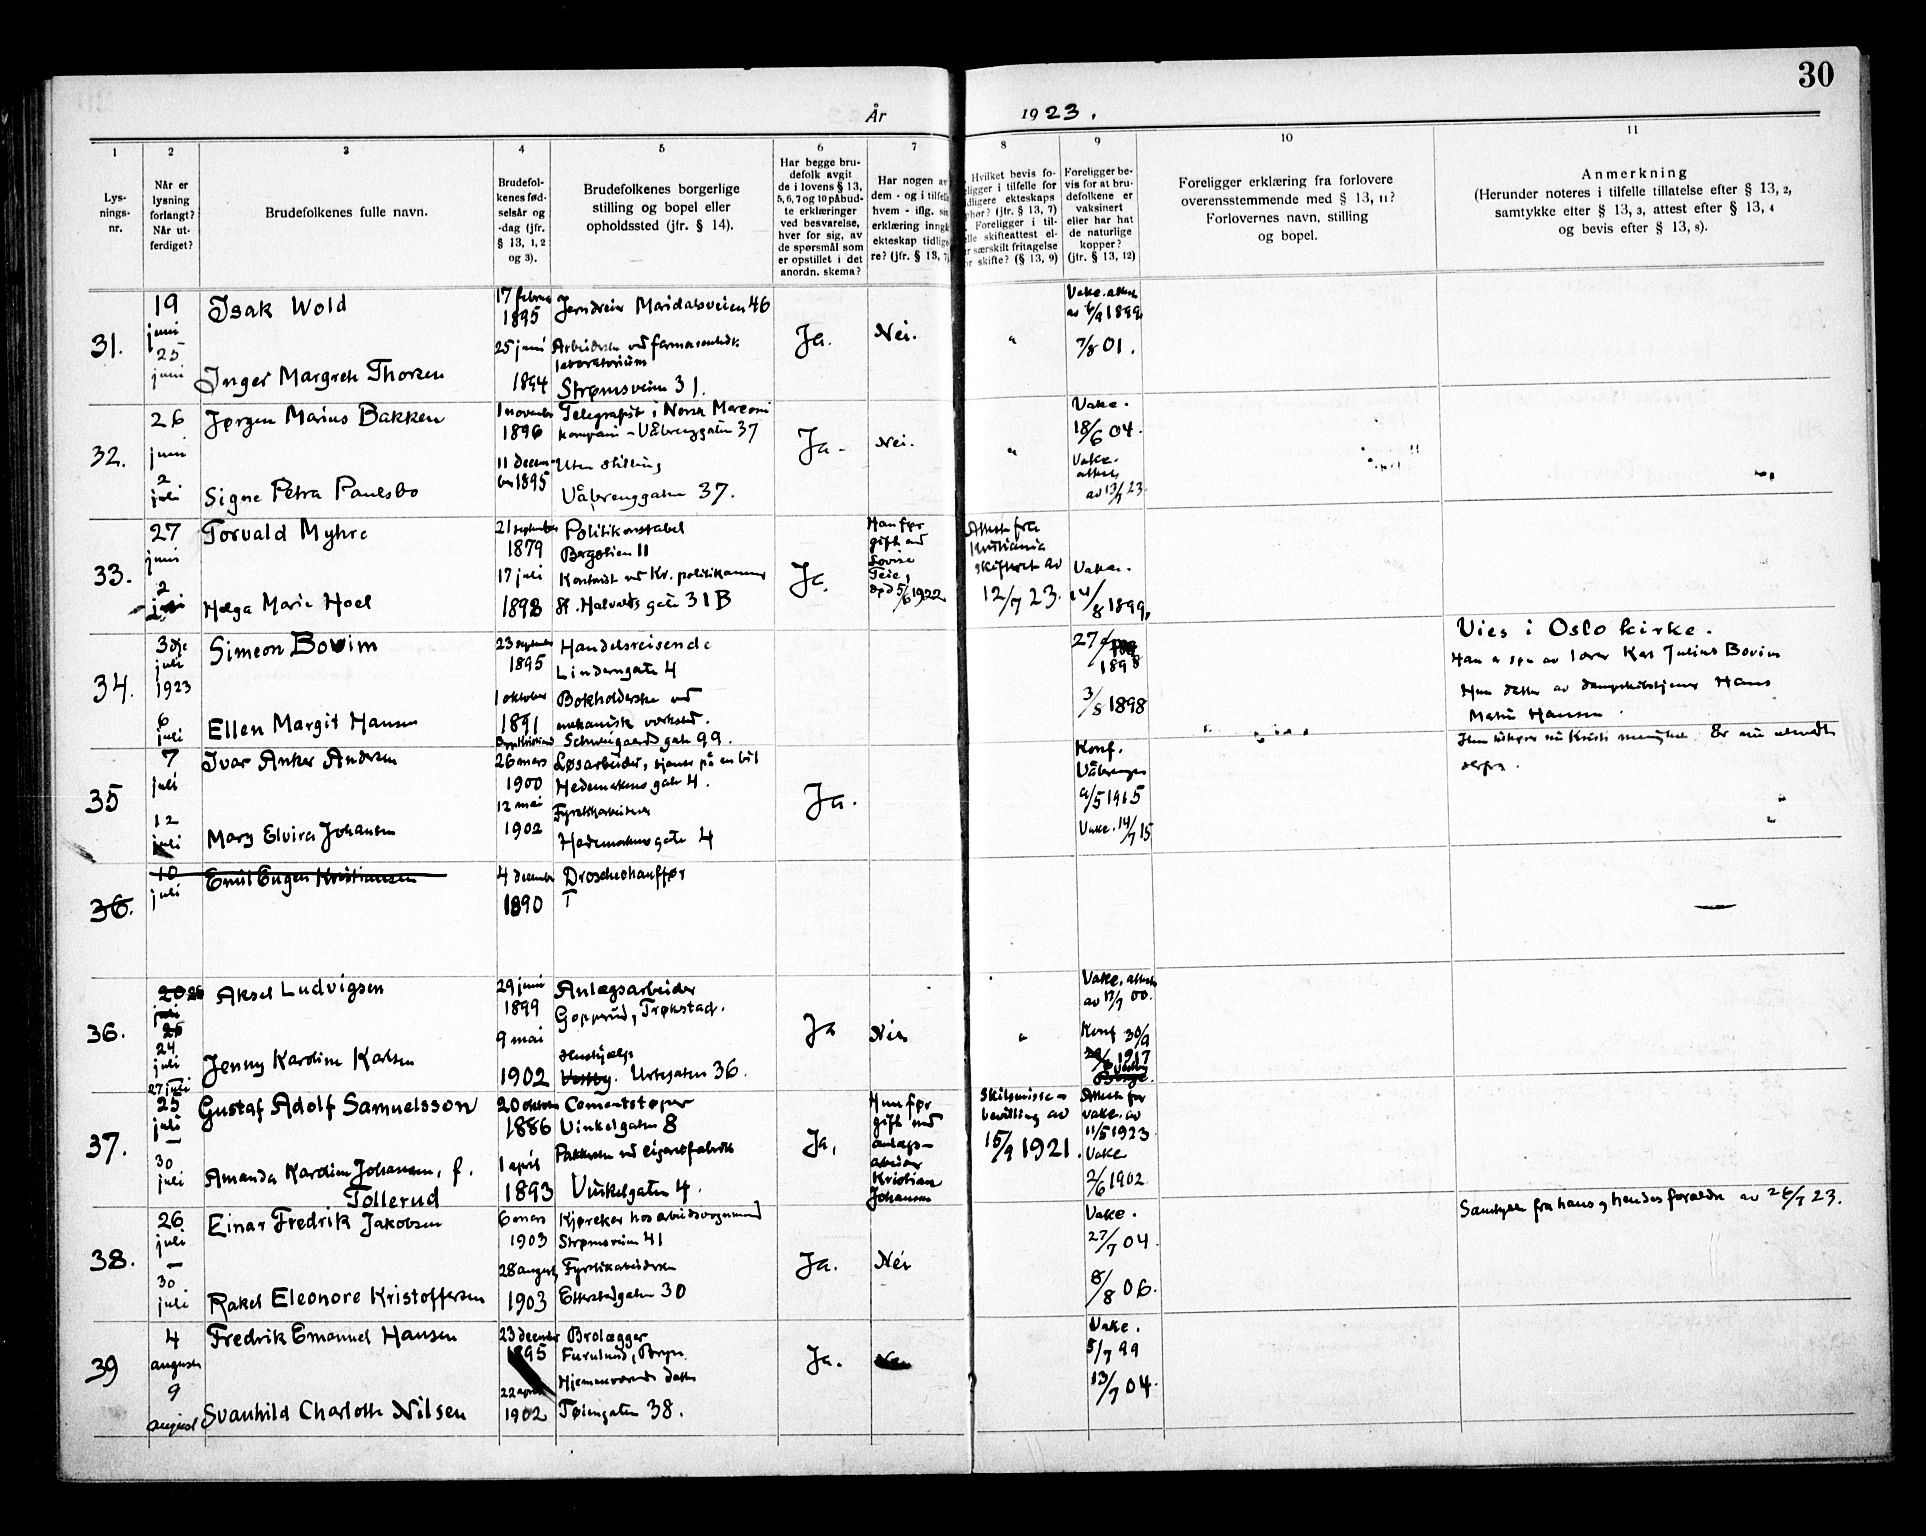 30
År 1923.
1 2 3 4 5 6 7 8 9 10 11
Lysnings-
nr.
Når er
lysning
forlangt?
Når ut-
ferdiget?
Brudefolkenes fulle navn.
Brudefol-
kenes fød-
selsår og
-dag (jfr.
§ 13, 1, 2
og 3).
Brudefolkenes borgerlige
stilling og bopel eller
opholdssted (jfr. § 14).
Har begge bru-
defolk avgit
de i lovens § 13,
5, 6, 7 og 10 påbud-
te erklæringer
ved besvarelse,
hver for sig, av
de spørsmål som
er opstillet i det
anordn. skema?
Har nogen av
dem - og i tilfelle
hvem - iflg. sin
erklæring inngå
ekteskap tidlige
re? (jfr. § 13, 7
Hvilket bevis fo-
ligger i tilfelle for
dligere ekteskaps
phør? (jfr. § 13, 7)
Foreligger i til-
lle skifteattest el-
r særskilt fritagelse
or skifte? (§ 13, 9)
Foreligger be-
vis for at bru-
defolkene er
vaksinert
eller har hat
de naturlige
kopper?
(jfr. § 13, 12)
Foreligger erklæring fra forlovere
overensstemmende med § 13, 11?
Forlovernes navn, stilling
og bopel.
Anmerkning
(Herunder noteres i tilfelle tillatelse efter § 13, 2,
samtykke efter § 13, 3, attest efter § 13, 4
og bevis efter § 13, 8).
31.
19
juni
25
juni
Isak Wold
Inger Margrete Thorsen
17 februar
1895
25 juni
1894
Jerndreier Maridalsveien 46
Arbeiderske ved farmaseutisk
laboratorium
Strømsveien 31.
Ja.
Nei.
"
Vakc. attest
av 6/9 1899.
7/8 01.
32.
26
juni
2
juli
Jørgen Marius Bakken
Signe Petra Paulsbo
1 november
1896
11 decem-
ber 1895
Telegrafist i Norsk Marconi
kompani - Vålerenggaten 37
Uten stilling
Vålerenggaten 37.
Ja.
Nei.
"
Vakc.
18/6 04.
Vakc.
attest
av 13/7 23.
33.
27
juni
2
juli
Torvald Myhre
Helga Marie Hoel
21 september
1879
17 juli
1898
Politikonstabel
Bergslien 11
Kontorist ved Kr. politikammer
St. Halvards gate 31 B
Ja.
Han før
gift med
Lovise
Teie,
død 5/6 1922.
Attest fra
Kristiania
skifteret av
12/7 23.
Vakc.
14/8 1899.
34.
3dje
juli
1923
6
juli
Simeon Bovim
Ellen Margit Hansen
23 september
1895
1 oktober
1891
Handelsreisende
Linderngaten 4
Bokholderske ved
mekanisk verksted.
Schweigaards gate 99.
27/
1898
3/8 1898
Vies i Oslo kirke.
Han er søn av lærer Karl Julius Bovim
Hun datter av dampskibstjener Hans
Hansen
35
7
juli
12
juli
Ivar Anker Andersen
Mary Elvira Johansen
26 mars
1900
12 mai
1902
Løsarbeider, tjener på en bil
Hedemarkens gate 4.
Fyrstikkarbeiderske
Hedemarkens gate 4
Ja.
Konf.
Vålerengen
9/5 1915
Vakc. 14/7 15
36.
10
juli
Emil Eugen Kristiansen
4 december
1890
Droschechauffør
T
36.
20 26
juli
24
juli
27 juli
Aksel Ludvigsen
Jenny Karoline Karlsen
29 juni
1899
9 mai
1902
Anlægsarbeider
Gopperud, Trøkstad.
Hushjælp
Vestby. Urtegaten 36.
Ja
Nei
"
Vakc. attest
av 17/7 00.
Konf 30/9
1917
37.
25
juli
30
juli
Gustaf Adolf Samuelsson
Amanda Karoline Johansen, f.
Tollerud
20 oktober
1886
1 april
1893
Cementstøper
Vinkelgaten 8
Pakkerske ved cigaretfabrik
Vinkelgaten 4.
Ja.
Hun før
gift med
anlægs-
arbeider
Kristian
Johansen
Skilsmisse-
bevilling av
15/9 1921.
Attest for
vakc. av
11/5 1923
Vakc
2/6 1902
38.
26
juli
30
juli
Einar Fredrik Jakobsen
Rakel Eleonore Kristoffersen
6 mars
1903
28 august
1903
Kjørekar hos arbeidsvognmand
Strømsveien 41
Fyrstikarbeiderske
Etterstadgaten 30
Ja.
Nei
Vakc.
27/7 04.
8/8 06.
Samtykke fra hans og hendes forældre av 26/7 23.
39
4
august
9
august
Fredrik Emanuel Hansen
Svanhild Charlotte Nilsen
23 december
1895
22 april
1902
Brolægger
Furulund, Bryn.
Hjemmeværende datter
Tøiengaten 38.
Ja.
Nei
Vakc.
5/7 99
13/7 04.